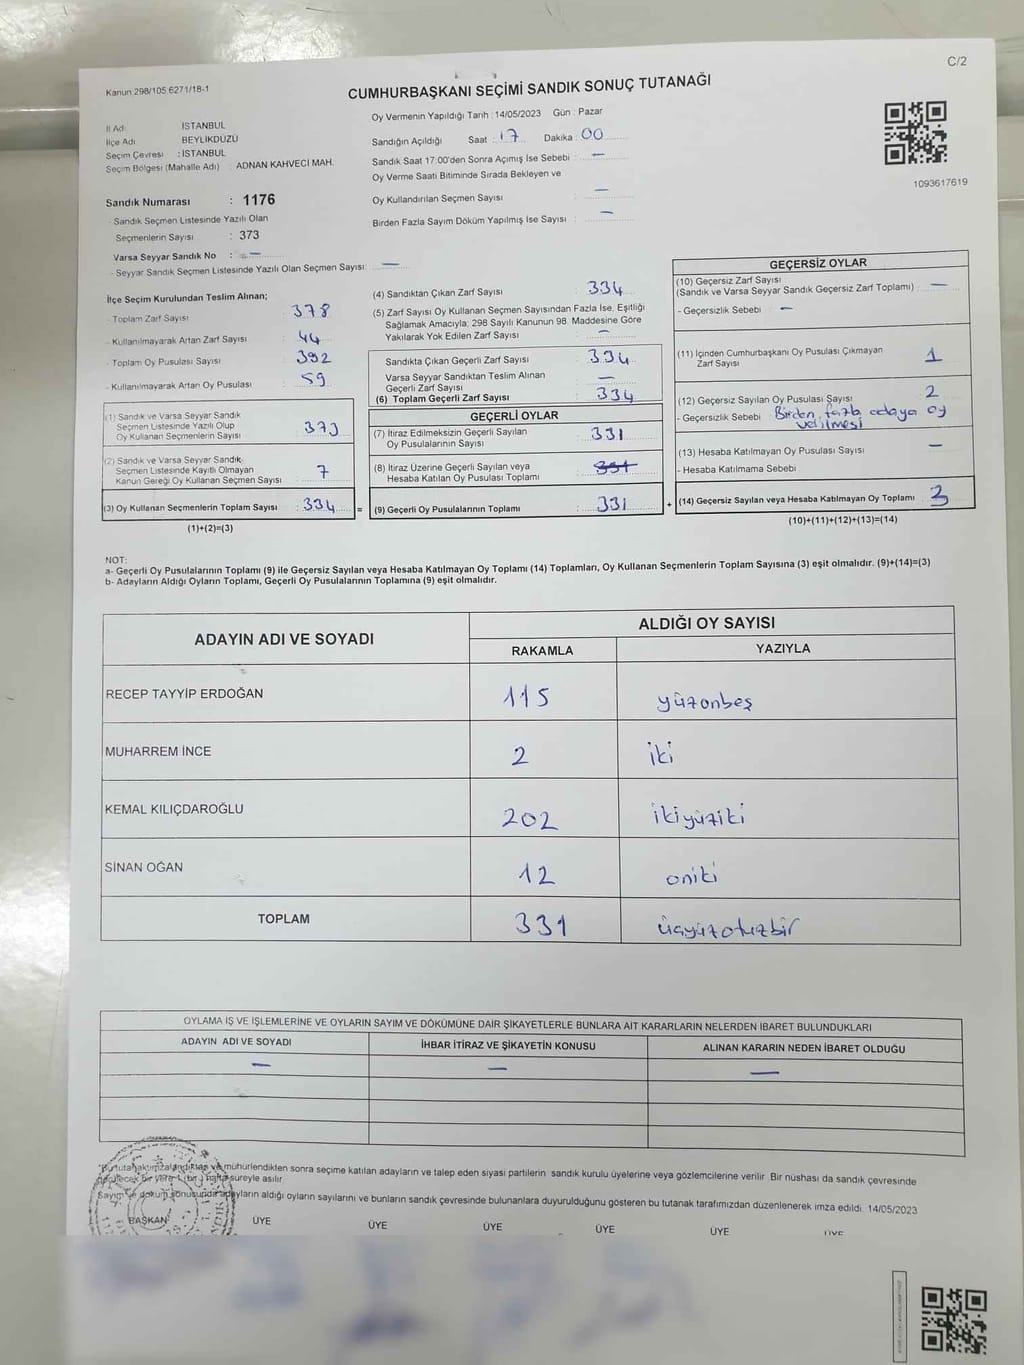 C/2
Kanun 298/105 6271/18-1
CUMHURBAŞKANI SEÇİMİ SANDIK SONUÇ TUTANAĞI
İl Adı : İSTANBUL
İlçe Adı : BEYLİKDÜZÜ
Seçim Çevresi : İSTANBUL
Seçim Bölgesi (Mahalle Adı) : ADNAN KAHVECİ MAH.
Sandık Numarası : 1176
- Sandık Seçmen Listesinde Yazılı Olan
Seçmenlerin Sayısı : 373
Varsa Seyyar Sandık No : -
- Seyyar Sandık Seçmen Listesinde Yazılı Olan Seçmen Sayısı: -
Oy Vermenin Yapıldığı Tarih :14/05/2023 Gün : Pazar
Sandığın Açıldığı Saat : 17 Dakika : 00
Sandık Saat 17:00'den Sonra Açımış İse Sebebi : -
Oy Verme Saati Bitiminde Sırada Bekleyen ve
Oy Kullandırılan Seçmen Sayısı : -
Birden Fazla Sayım Döküm Yapılmış İse Sayısı : -
1093617619
İlçe Seçim Kurulundan Teslim Alınan;
- Toplam Zarf Sayısı : 378
- Kullanılmayarak Artan Zarf Sayısı : 44
- Toplam Oy Pusulası Sayısı : 392
- Kullanılmayarak Artan Oy Pusulası : 59
(1) Sandık ve Varsa Seyyar Sandık
Seçmen Listesinde Yazılı Olup
Oy Kullanan Seçmenlerin Sayısı : 373
(2) Sandık ve Varsa Seyyar Sandık
Seçmen Listesinde Kayıtlı Olmayan
Kanun Gereği Oy Kullanan Seçmen Sayısı : 7
(3) Oy Kullanan Seçmenlerin Toplam Sayısı : 334 =
(1)+(2)=(3)
(4) Sandıktan Çıkan Zarf Sayısı : 334
(5) Zarf Sayısı Oy Kullanan Seçmen Sayısından Fazla İse, Eşitliği
Sağlamak Amacıyla, 298 Sayılı Kanunun 98. Maddesine Göre
Yakılarak Yok Edilen Zarf Sayısı : -
Sandıkta Çıkan Geçerli Zarf Sayısı : 334
Varsa Seyyar Sandıktan Teslim Alınan
Geçerli Zarf Sayısı : -
(6) Toplam Geçerli Zarf Sayısı : 334
GEÇERLİ OYLAR
(7) İtiraz Edilmeksizin Geçerli Sayılan
Oy Pusulalarının Sayısı : 331
(8) İtiraz Üzerine Geçerli Sayılan veya
Hesaba Katılan Oy Pusulası Toplamı : 331
(9) Geçerli Oy Pusulalarının Toplamı : 331 +
GEÇERSİZ OYLAR
(10) Geçersiz Zarf Sayısı
(Sandık ve Varsa Seyyar Sandık Geçersiz Zarf Toplamı) : -
- Geçersizlik Sebebi : -
(11) İçinden Cumhurbaşkanı Oy Pusulası Çıkmayan
Zarf Sayısı : 1
(12) Geçersiz Sayılan Oy Pusulası Sayısı : 2
- Geçersizlik Sebebi : Birden fazla adaya oy
verilmesi
(13) Hesaba Katılmayan Oy Pusulası Sayısı : -
- Hesaba Katılmama Sebebi :
(14) Geçersiz Sayılan veya Hesaba Katılmayan Oy Toplamı : 3
(10)+(11)+(12)+(13)=(14)
NOT:
a- Geçerli Oy Pusulalarının Toplamı (9) ile Geçersiz Sayılan veya Hesaba Katılmayan Oy Toplamı (14) Toplamları, Oy Kullanan Seçmenlerin Toplam Sayısına (3) eşit olmalıdır. (9)+(14)=(3)
b- Adayların Aldığı Oyların Toplamı, Geçerli Oy Pusulalarının Toplamına (9) eşit olmalıdır.
ADAYIN ADI VE SOYADI
ALDIĞI OY SAYISI
RAKAMLA YAZIYLA
RECEP TAYYİP ERDOĞAN 115 yüzonbeş
MUHARREM İNCE 2 iki
KEMAL KILIÇDAROĞLU 202 ikiyüziki
SİNAN OĞAN 12 oniki
TOPLAM 331 üçyüzotuzbir
OYLAMA İŞ VE İŞLEMLERİNE VE OYLARIN SAYIM VE DÖKÜMÜNE DAİR ŞİKAYETLERLE BUNLARA AİT KARARLARIN NELERDEN İBARET BULUNDUKLARI
ADAYIN ADI VE SOYADI İHBAR İTİRAZ VE ŞİKAYETİN KONUSU ALINAN KARARIN NEDEN İBARET OLDUĞU
- - -
*Bu tutanak imzalandıktan ve mühürlendikten sonra seçime katılan adayların ve talep eden siyasi partilerin sandık kurulu üyelerine veya gözlemcilerine verilir. Bir nüshası da sandık çevresinde
görülecek bir yere 1 (bir) hafta süreyle asılır.
Sayım ve döküm sonucunda adayların aldığı oyların sayılarını ve bunların sandık çevresinde bulunanlara duyurulduğunu gösteren bu tutanak tarafımızdan düzenlenerek imza edildi. 14/05/2023
BAŞKAN ÜYE ÜYE ÜYE ÜYE ÜYE ÜYE